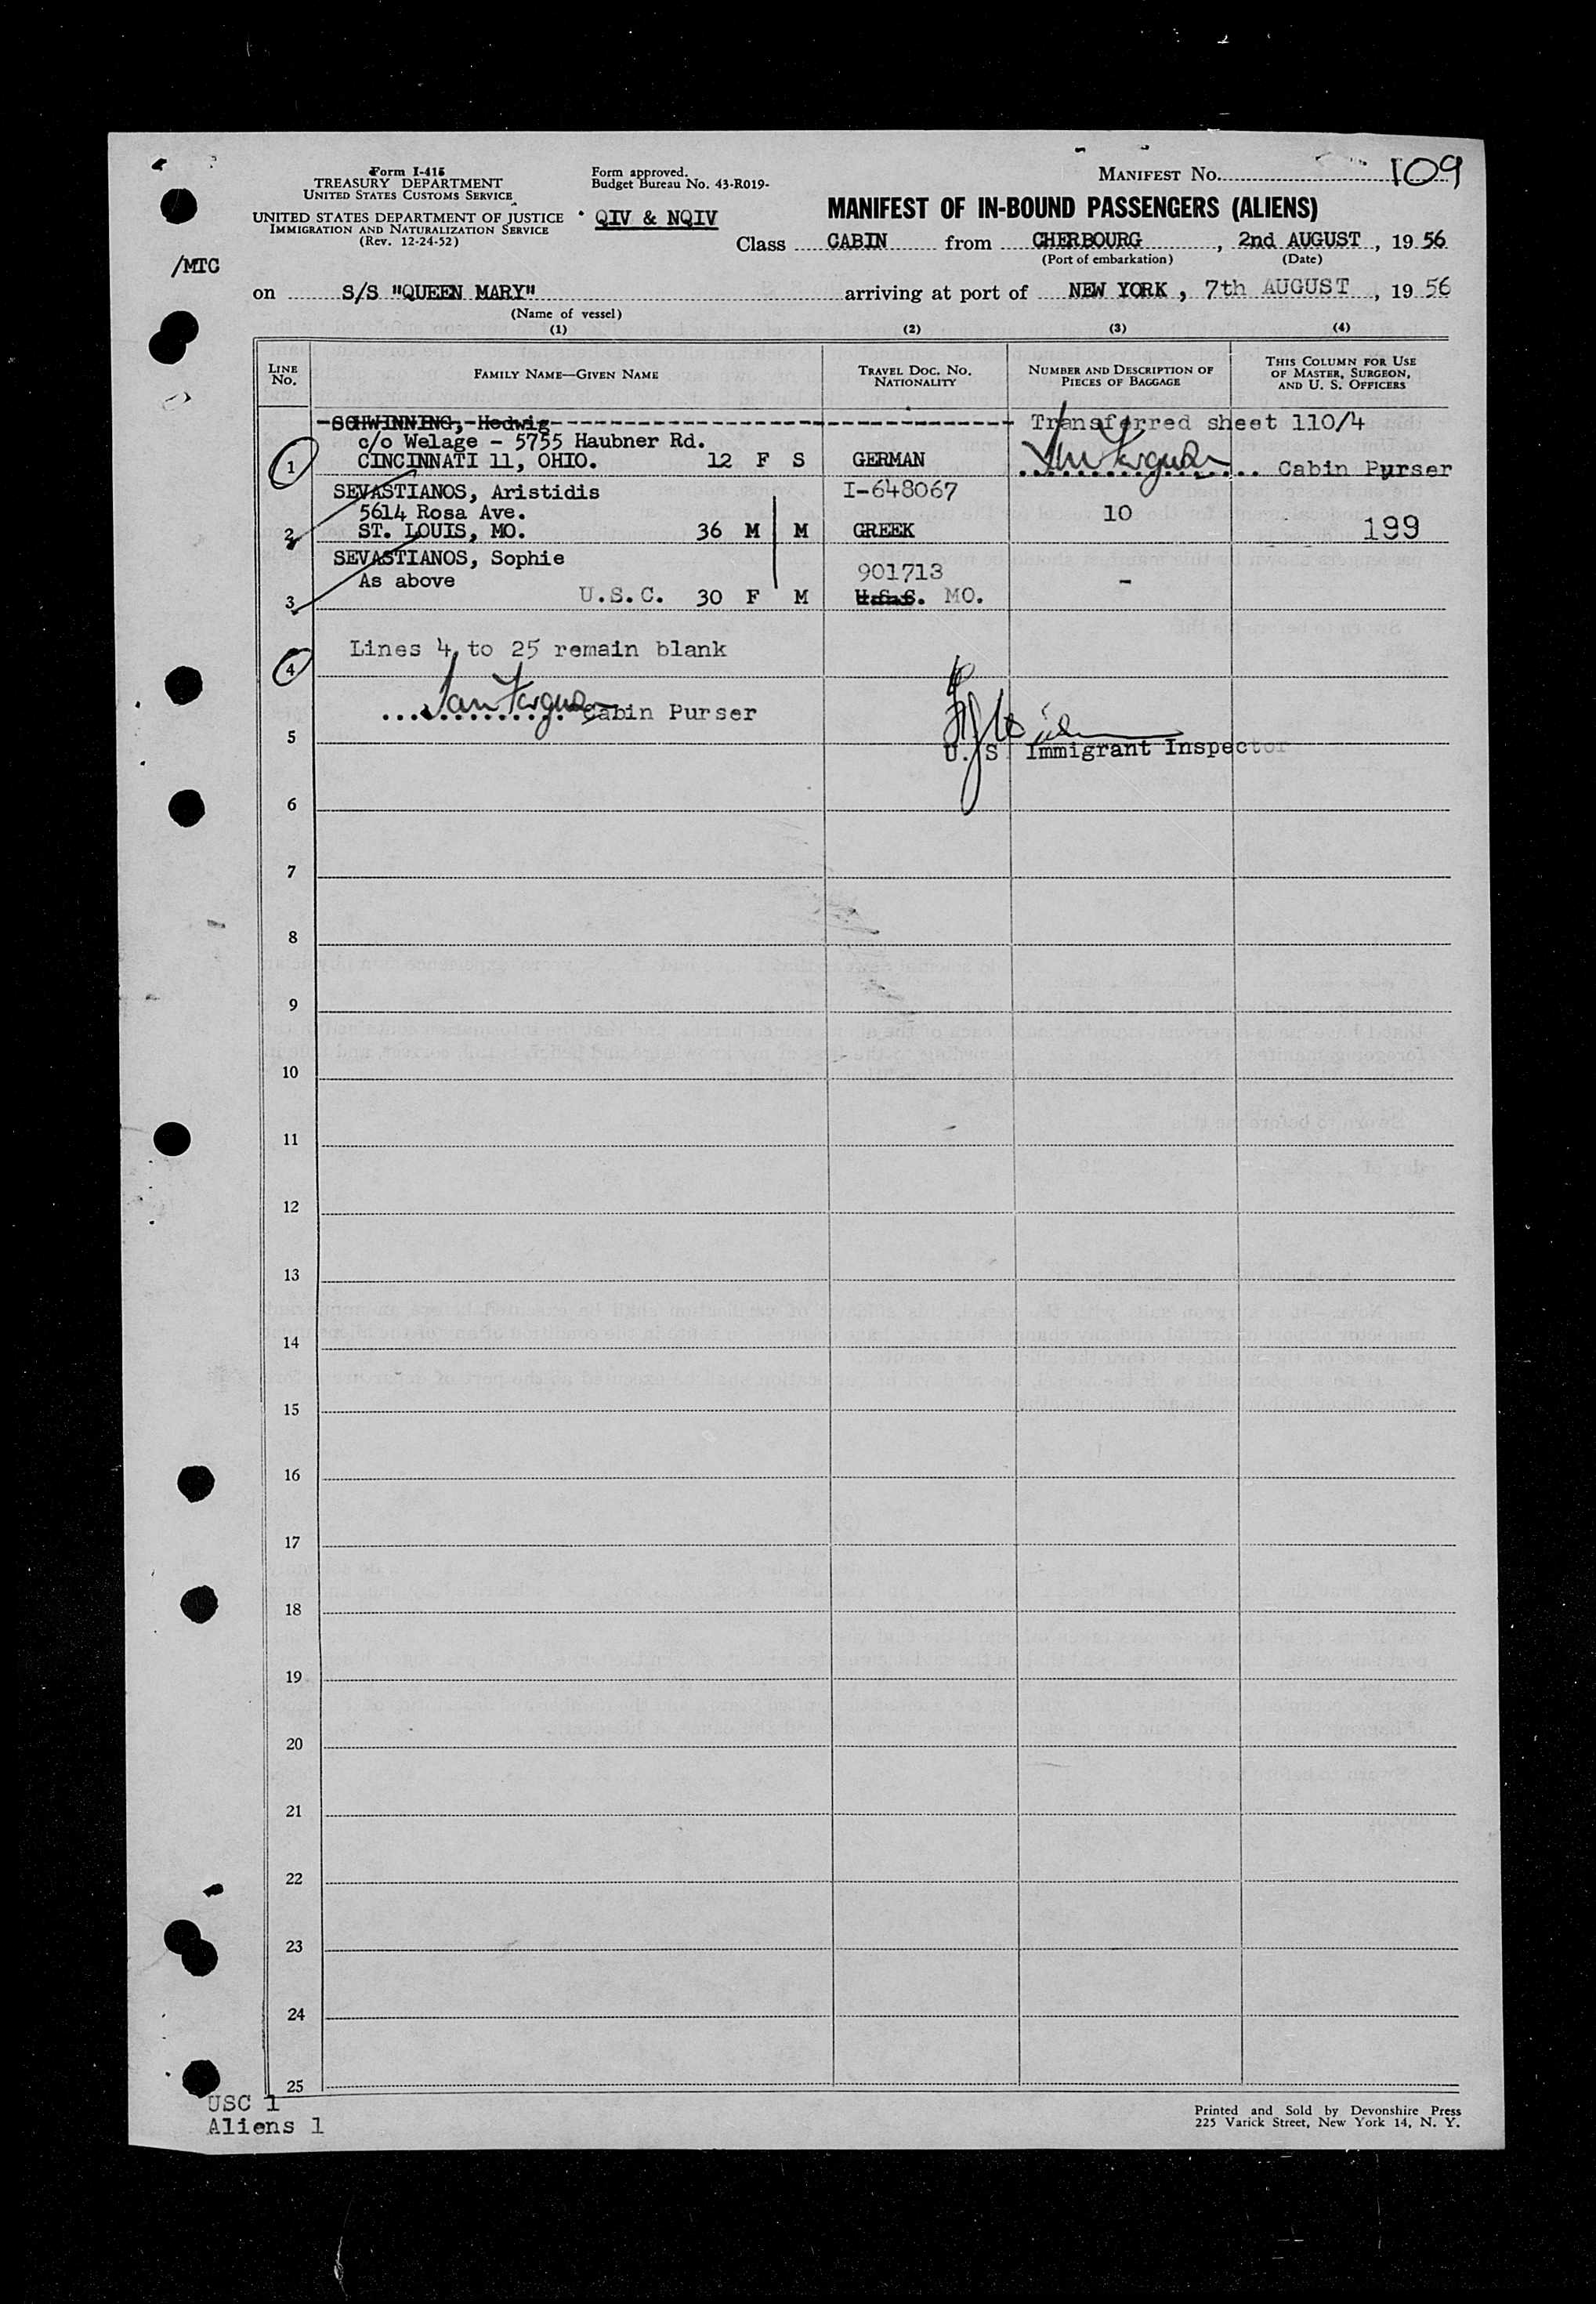 Form I-415
TREASURY DEPARTMENT
UNITED STATES CUSTOMS SERVICE
UNITED STATES DEPARTMENT OF JUSTICE
IMMIGRATION AND NATURALIZATION SERVICE
(Rev. 12-24-52)
/MTG
Form approved.
Budget Bureau No. 43-R019-
QIV & NQIV
MANIFEST No. 109
MANIFEST OF IN-BOUND PASSENGERS (ALIENS)
Class CABIN from CHERBOURG, 2nd AUGUST, 19 56
(Port of embarkation) (Date)
on S/S "QUEEN MARY" arriving at port of NEW YORK, 7th AUGUST, 19 56
(Name of vessel)
(1) (2) (3) (4)
LINE No. FAMILY NAME—GIVEN NAME TRAVEL DOC. No. NATIONALITY NUMBER AND DESCRIPTION OF PIECES OF BAGGAGE THIS COLUMN FOR USE OF MASTER, SURGEON, AND U. S. OFFICERS
SCHWINNING, Hedwig Transferred sheet 110/4
c/o Welage - 5755 Haubner Rd.
1 CINCINNATI 11, OHIO. 12 F S GERMAN Ian Ferguson Cabin Purser
SEVASTIANOS, Aristidis I-648067
5614 Rosa Ave. 10
2 ST. LOUIS, MO. 36 M M GREEK 199
SEVASTIANOS, Sophie 901713
As above -
3 U.S.C. 30 F M U.S.C. MO.
Lines 4 to 25 remain blank
4
Ian Ferguson Cabin Purser
5
U. S. Immigrant Inspector
6
7
8
9
10
11
12
13
14
15
16
17
18
19
20
21
22
23
24
25
USC 1
Aliens 1
Printed and Sold by Devonshire Press
225 Varick Street, New York 14, N. Y.